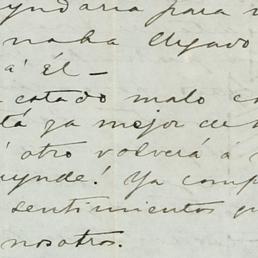 yndaria para
naba llegado
á él —
estado malo
tá ya mejor de
otro volverá á
uynde! Ya comp
sentimientos qu
nosotros.